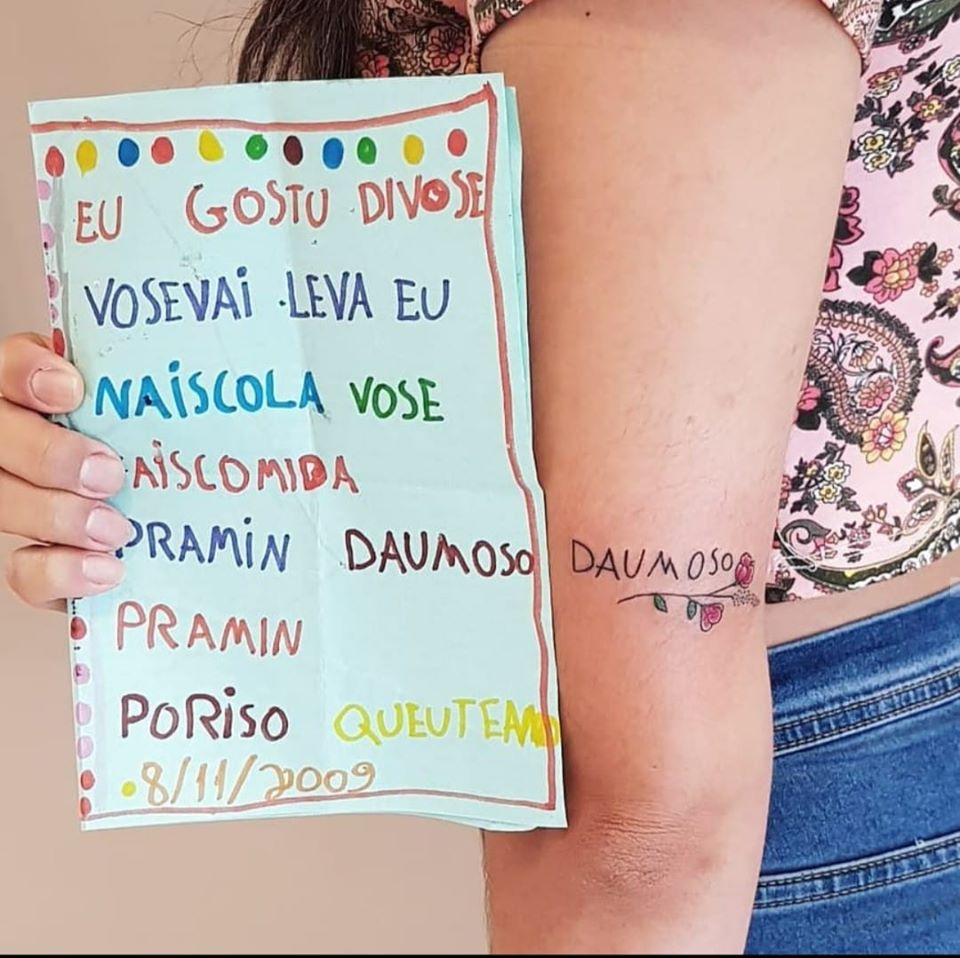 EU GOSTU DIVOSE
VOSEVAI LEVA EU
NAISCOLA VOSE
AISCOMIDA
PRAMIN DAUMOSO
PRAMIN
PORISO QUEUTEAMO
8/11/2009
DAUMOSO